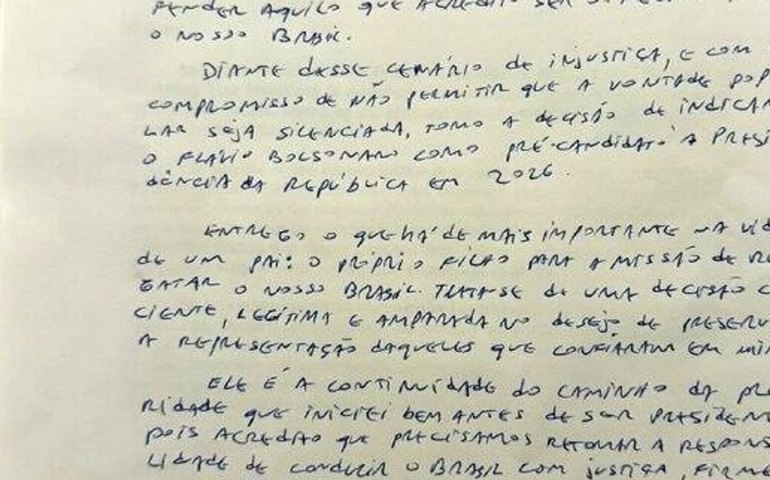 PENDER AQUILO QUE ACREDITO SER
O NOSSO BRASIL.
DIANTE DESSE CENÁRIO DE INJUSTIÇA, E COM
COMPROMISSO DE NÃO PERMITIR QUE A VONTADE POP
LAR SEJA SILENCIADA, TOMO A DECISÃO DE INDICAR
O FLÁVIO BOLSONARO COMO PRÉ-CANDIDATO À PRESI
DÊNCIA DA REPÚBLICA EM 2026.
ENTREGO O QUE HÁ DE MAIS IMPORTANTE NA VID
DE UM PAI: O PRÓPRIO FILHO PARA A MISSÃO DE RE
GATAR O NOSSO BRASIL. TRATA-SE DE UMA DECISÃO C
CIENTE, LEGÍTIMA E AMPARADA NO DESEJO DE PRESERV
A REPRESENTAÇÃO DAQUELES QUE CONFIARAM EM MIM
ELE É A CONTINUIDADE DO CAMINHO DA PRO
RIDADE QUE INICIEI BEM ANTES DE SER PRESIDENT
POIS ACREDITO QUE PRECISAMOS RETOMAR A RESPONS
LIDADE DE CONDUZIR O BRASIL COM JUSTIÇA, FIRME